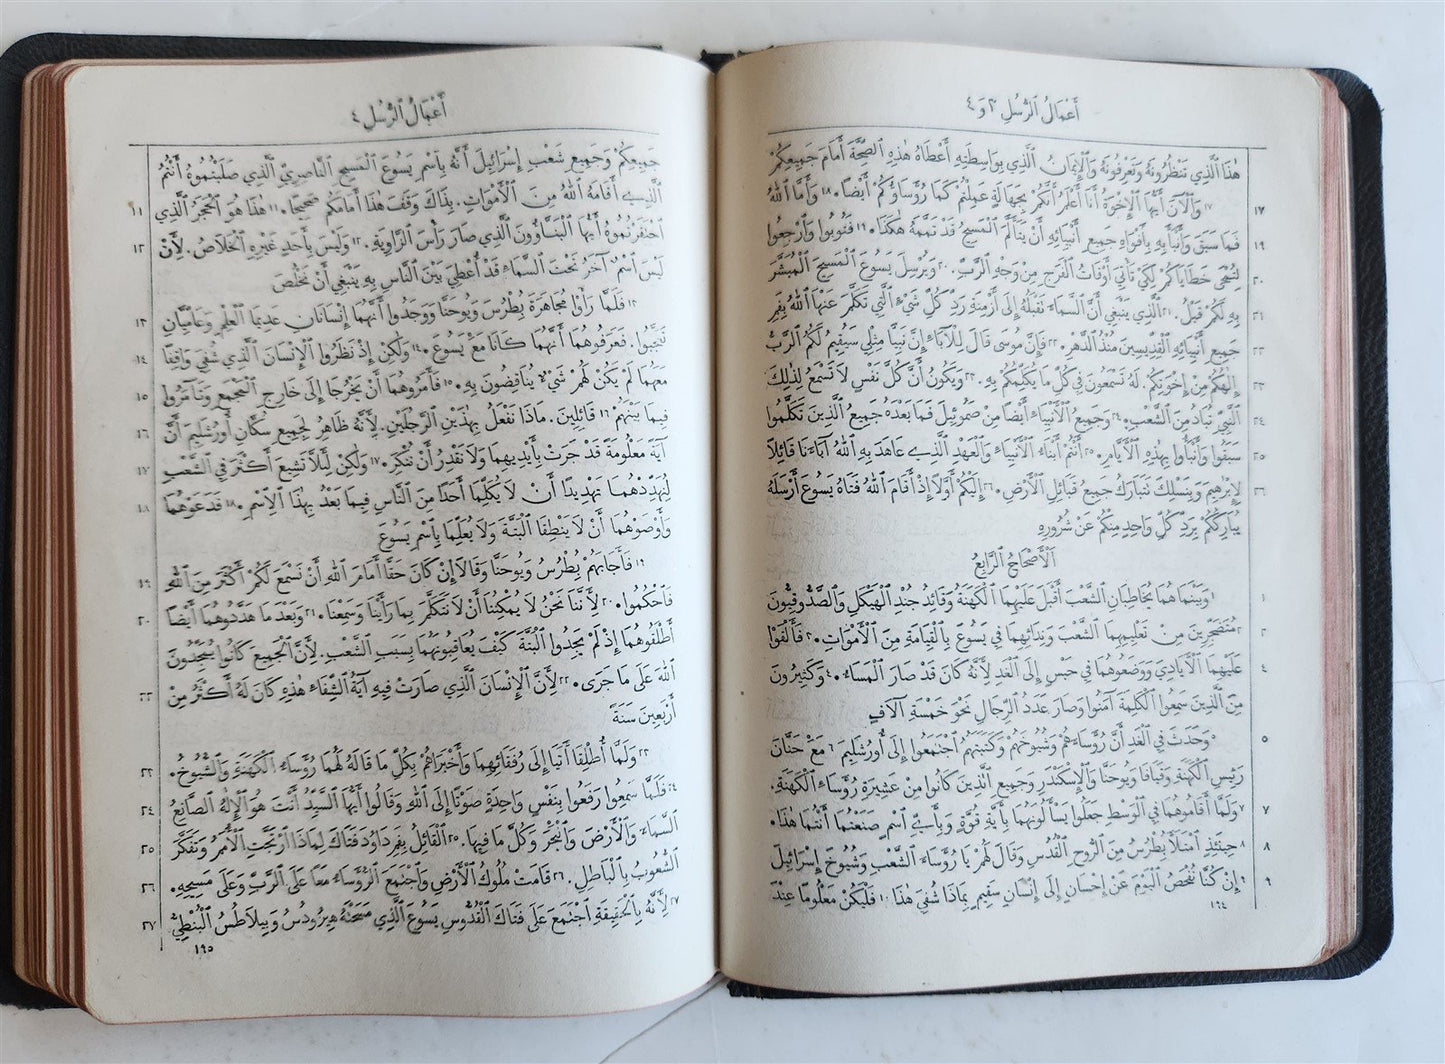 أَعْمَالُ ٱلرُّسُلِ ٣ وَ ٤
هٰذَا ٱلَّذِي تَنْظُرُونَهُ وَتَعْرِفُونَهُ وَٱلْإِيمَانُ ٱلَّذِي بِوَاسِطَتِهِ أَعْطَاهُ هٰذِهِ ٱلصِّحَّةَ أَمَامَ جَمِيعِكُمْ
١٧ ١٧ وَٱلْآنَ أَيُّهَا ٱلْإِخْوَةُ أَنَا أَعْلَمُ أَنَّكُمْ بِجَهَالَةٍ عَمِلْتُمْ كَمَا رُؤَسَاؤُكُمْ أَيْضًا. ١٨ وَأَمَّا ٱللهُ
١٩ فَمَا سَبَقَ وَأَنْبَأَ بِهِ بِأَفْوَاهِ جَمِيعِ أَنْبِيَائِهِ أَنْ يَتَأَلَّمَ ٱلْمَسِيحُ قَدْ تَمَّمَهُ هٰكَذَا. ١٩ فَتُوبُوا وَٱرْجِعُوا
٢٠ لِتُمْحَى خَطَايَاكُمْ لِكَيْ تَأْتِيَ أَوْقَاتُ ٱلْفَرَجِ مِنْ وَجْهِ ٱلرَّبِّ. ٢٠ وَيُرْسِلَ يَسُوعَ ٱلْمَسِيحَ ٱلْمُبَشَّرَ
٢١ بِهِ لَكُمْ قَبْلُ. ٢١ ٱلَّذِي يَنْبَغِي أَنَّ ٱلسَّمَاءَ تَقْبَلُهُ إِلَى أَزْمِنَةِ رَدِّ كُلِّ شَيْءٍ ٱلَّتِي تَكَلَّمَ عَنْهَا ٱللهُ بِفَمِ
٢٢ جَمِيعِ أَنْبِيَائِهِ ٱلْقِدِّيسِينَ مُنْذُ ٱلدَّهْرِ. ٢٢ فَإِنَّ مُوسَى قَالَ لِلْآبَاءِ إِنَّ نَبِيًّا مِثْلِي سَيُقِيمُ لَكُمُ ٱلرَّبُّ
٢٣ إِلٰهُكُمْ مِنْ إِخْوَتِكُمْ. لَهُ تَسْمَعُونَ فِي كُلِّ مَا يُكَلِّمُكُمْ بِهِ. ٢٣ وَيَكُونُ أَنَّ كُلَّ نَفْسٍ لَا تَسْمَعُ لِذٰلِكَ
٢٤ ٱلنَّبِيِّ تُبَادُ مِنَ ٱلشَّعْبِ. ٢٤ وَجَمِيعُ ٱلْأَنْبِيَاءِ أَيْضًا مِنْ صَمُوئِيلَ فَمَا بَعْدَهُ جَمِيعُ ٱلَّذِينَ تَكَلَّمُوا
٢٥ سَبَقُوا وَأَنْبَأُوا بِهٰذِهِ ٱلْأَيَّامِ. ٢٥ أَنْتُمْ أَبْنَاءُ ٱلْأَنْبِيَاءِ وَٱلْعَهْدِ ٱلَّذِي عَاهَدَ بِهِ ٱللهُ آبَاءَنَا قَائِلًا
٢٦ لِإِبْرٰهِيمَ وَبِنَسْلِكَ تَتَبَارَكُ جَمِيعُ قَبَائِلِ ٱلْأَرْضِ. ٢٦ إِلَيْكُمْ أَوَّلًا إِذْ أَقَامَ ٱللهُ فَتَاهُ يَسُوعَ أَرْسَلَهُ
يُبَارِكُكُمْ بِرَدِّ كُلِّ وَاحِدٍ مِنْكُمْ عَنْ شُرُورِهِ
اَلْأَصْحَاحُ ٱلرَّابِعُ
١ ١ وَبَيْنَمَا هُمَا يُخَاطِبَانِ ٱلشَّعْبَ أَقْبَلَ عَلَيْهِمَا ٱلْكَهَنَةُ وَقَائِدُ جُنْدِ ٱلْهَيْكَلِ وَٱلصَّدُّوقِيُّونَ
٢ ٢ مُتَضَجِّرِينَ مِنْ تَعْلِيمِهِمَا ٱلشَّعْبَ وَنِدَائِهِمَا فِي يَسُوعَ بِٱلْقِيَامَةِ مِنَ ٱلْأَمْوَاتِ. ٣ فَأَلْقَوْا
٤ عَلَيْهِمَا ٱلْأَيَادِيَ وَوَضَعُوهُمَا فِي حَبْسٍ إِلَى ٱلْغَدِ لِأَنَّهُ كَانَ قَدْ صَارَ ٱلْمَسَاءُ. ٤ وَكَثِيرُونَ
مِنَ ٱلَّذِينَ سَمِعُوا ٱلْكَلِمَةَ آمَنُوا وَصَارَ عَدَدُ ٱلرِّجَالِ نَحْوَ خَمْسَةِ آلَافٍ
٥ ٥ وَحَدَثَ فِي ٱلْغَدِ أَنَّ رُؤَسَاءَهُمْ وَشُيُوخَهُمْ وَكَتَبَتَهُمُ ٱجْتَمَعُوا إِلَى أُورُشَلِيمَ ٦ مَعَ حَنَّانَ
رَئِيسِ ٱلْكَهَنَةِ وَقَيَافَا وَيُوحَنَّا وَٱلْإِسْكَنْدَرِ وَجَمِيعِ ٱلَّذِينَ كَانُوا مِنْ عَشِيرَةِ رُؤَسَاءِ ٱلْكَهَنَةِ.
٧ ٧ وَلَمَّا أَقَامُوهُمَا فِي ٱلْوَسْطِ جَعَلُوا يَسْأَلُونَهُمَا بِأَيَّةِ قُوَّةٍ وَبِأَيِّ ٱسْمٍ صَنَعْتُمَا أَنْتُمَا هٰذَا.
٨ ٨ حِينَئِذٍ ٱمْتَلَأَ بُطْرُسُ مِنَ ٱلرُّوحِ ٱلْقُدُسِ وَقَالَ لَهُمْ يَا رُؤَسَاءَ ٱلشَّعْبِ وَشُيُوخَ إِسْرَائِيلَ
٩ ٩ إِنْ كُنَّا نُفْحَصُ ٱلْيَوْمَ عَنْ إِحْسَانٍ إِلَى إِنْسَانٍ سَقِيمٍ بِمَاذَا شُفِيَ هٰذَا ١٠ فَلْيَكُنْ مَعْلُومًا عِنْدَ
١٩٤
أَعْمَالُ ٱلرُّسُلِ ٤
جَمِيعِكُمْ وَجَمِيعِ شَعْبِ إِسْرَائِيلَ أَنَّهُ بِٱسْمِ يَسُوعَ ٱلْمَسِيحِ ٱلنَّاصِرِيِّ ٱلَّذِي صَلَبْتُمُوهُ أَنْتُمُ
١١ ٱلَّذِي أَقَامَهُ ٱللهُ مِنَ ٱلْأَمْوَاتِ. بِذَاكَ وَقَفَ هٰذَا أَمَامَكُمْ صَحِيحًا. ١١ هٰذَا هُوَ ٱلْحَجَرُ ٱلَّذِي
١٢ ٱحْتَقَرْتُمُوهُ أَيُّهَا ٱلْبَنَّاؤُونَ ٱلَّذِي صَارَ رَأْسَ ٱلزَّاوِيَةِ. ١٢ وَلَيْسَ بِأَحَدٍ غَيْرِهِ ٱلْخَلَاصُ. لِأَنْ
لَيْسَ ٱسْمٌ آخَرُ تَحْتَ ٱلسَّمَاءِ قَدْ أُعْطِيَ بَيْنَ ٱلنَّاسِ بِهِ يَنْبَغِي أَنْ نَخْلُصَ
١٣ ١٣ فَلَمَّا رَأَوْا مُجَاهَرَةَ بُطْرُسَ وَيُوحَنَّا وَوَجَدُوا أَنَّهُمَا إِنْسَانَانِ عَدِيمَا ٱلْعِلْمِ وَعَامِّيَّانِ
١٤ تَعَجَّبُوا. فَعَرَفُوهُمَا أَنَّهُمَا كَانَا مَعَ يَسُوعَ. ١٤ وَلٰكِنْ إِذْ نَظَرُوا ٱلْإِنْسَانَ ٱلَّذِي شُفِيَ وَاقِفًا
١٥ مَعَهُمَا لَمْ يَكُنْ لَهُمْ شَيْءٌ يُنَاقِضُونَ بِهِ. ١٥ فَأَمَرُوهُمَا أَنْ يَخْرُجَا إِلَى خَارِجِ ٱلْمَجْمَعِ وَتَآمَرُوا
١٦ فِيمَا بَيْنَهُمْ ١٦ قَائِلِينَ. مَاذَا نَفْعَلُ بِهٰذَيْنِ ٱلرَّجُلَيْنِ. لِأَنَّهُ ظَاهِرٌ لِجَمِيعِ سُكَّانِ أُورُشَلِيمَ أَنَّ
١٧ آيَةً مَعْلُومَةً قَدْ جَرَتْ بِأَيْدِيهِمَا وَلَا نَقْدِرُ أَنْ نُنْكِرَ. ١٧ وَلٰكِنْ لِئَلَّا تَشِيعَ أَكْثَرَ فِي ٱلشَّعْبِ
١٨ لِنُهَدِّدْهُمَا تَهْدِيدًا أَنْ لَا يُكَلِّمَا أَحَدًا مِنَ ٱلنَّاسِ فِيمَا بَعْدُ بِهٰذَا ٱلِٱسْمِ. ١٨ فَدَعَوْهُمَا
وَأَوْصَوْهُمَا أَنْ لَا يَنْطِقَا ٱلْبَتَّةَ وَلَا يُعَلِّمَا بِٱسْمِ يَسُوعَ
١٩ ١٩ فَأَجَابَهُمْ بُطْرُسُ وَيُوحَنَّا وَقَالَا إِنْ كَانَ حَقًّا أَمَامَ ٱللهِ أَنْ نَسْمَعَ لَكُمْ أَكْثَرَ مِنَ ٱللهِ
٢٠ فَٱحْكُمُوا. ٢٠ لِأَنَّنَا نَحْنُ لَا يُمْكِنُنَا أَنْ لَا نَتَكَلَّمَ بِمَا رَأَيْنَا وَسَمِعْنَا. ٢١ وَبَعْدَمَا هَدَّدُوهُمَا أَيْضًا
أَطْلَقُوهُمَا إِذْ لَمْ يَجِدُوا ٱلْبَتَّةَ كَيْفَ يُعَاقِبُونَهُمَا بِسَبَبِ ٱلشَّعْبِ. لِأَنَّ ٱلْجَمِيعَ كَانُوا يُمَجِّدُونَ
٢٢ ٱللهَ عَلَى مَا جَرَى. ٢٢ لِأَنَّ ٱلْإِنْسَانَ ٱلَّذِي صَارَتْ فِيهِ آيَةُ ٱلشِّفَاءِ هٰذِهِ كَانَ لَهُ أَكْثَرُ مِنْ
أَرْبَعِينَ سَنَةً
٢٣ ٢٣ وَلَمَّا أُطْلِقَا أَتَيَا إِلَى رُفَقَائِهِمَا وَأَخْبَرَاهُمْ بِكُلِّ مَا قَالَهُ لَهُمَا رُؤَسَاءُ ٱلْكَهَنَةِ وَٱلشُّيُوخُ.
٢٤ ٢٤ فَلَمَّا سَمِعُوا رَفَعُوا بِنَفْسٍ وَاحِدَةٍ صَوْتًا إِلَى ٱللهِ وَقَالُوا أَيُّهَا ٱلسَّيِّدُ أَنْتَ هُوَ ٱلْإِلٰهُ ٱلصَّانِعُ
٢٥ ٱلسَّمَاءَ وَٱلْأَرْضَ وَٱلْبَحْرَ وَكُلَّ مَا فِيهَا. ٢٥ ٱلْقَائِلُ بِفَمِ دَاوُدَ فَتَاكَ لِمَاذَا ٱرْتَجَّتِ ٱلْأُمَمُ وَتَفَكَّرَ
٢٦ ٱلشُّعُوبُ بِٱلْبَاطِلِ. ٢٦ قَامَتْ مُلُوكُ ٱلْأَرْضِ وَٱجْتَمَعَ ٱلرُّؤَسَاءُ مَعًا عَلَى ٱلرَّبِّ وَعَلَى مَسِيحِهِ.
٢٧ ٢٧ لِأَنَّهُ بِٱلْحَقِيقَةِ ٱجْتَمَعَ عَلَى فَتَاكَ ٱلْقُدُّوسِ يَسُوعَ ٱلَّذِي مَسَحْتَهُ هِيرُودُسُ وَبِيلَاطُسُ ٱلْبُنْطِيُّ
١٩٥